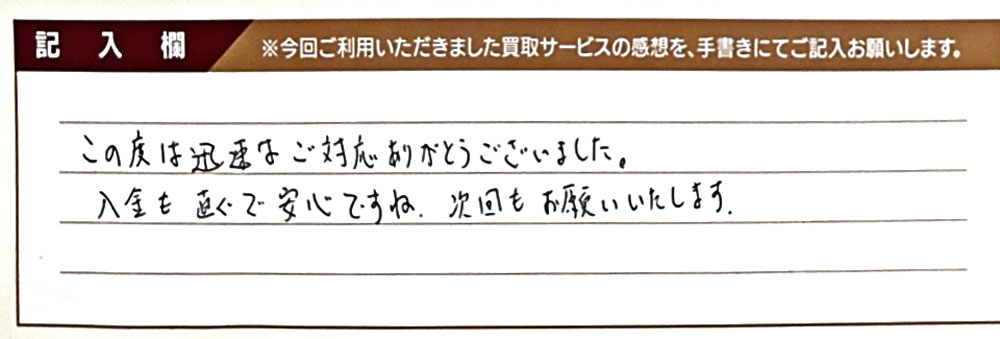 記入欄 ※今回ご利用いただきました買取サービスの感想を、手書きにてご記入お願いします。
この度は迅速なご対応ありがとうございました。
入金も直ぐで安心ですね. 次回もお願いいたします.